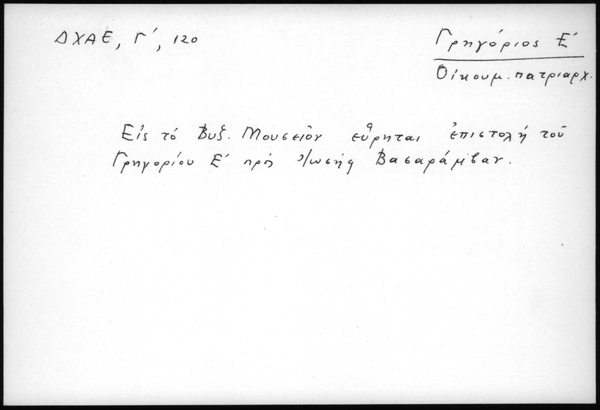 ΔΧΑΕ, Γ΄, 120
Γρηγόριος Ε΄
Οἰκουμ. πατριαρχ.
Εἰς τό Βυζ. Μουσεῖον εὕρηται ἐπιστολή τοῦ
Γρηγορίου Ε΄ πρός Ἰωσήφ Βασαράμβαν.